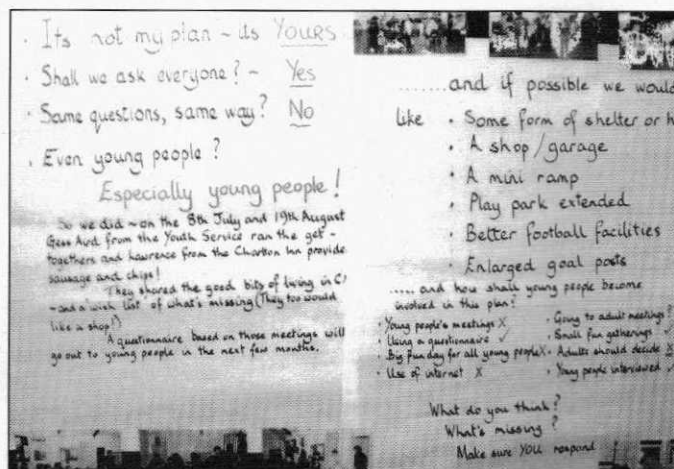 · Its not my plan ~ its YOURS
· Shall we ask everyone? ~ Yes
· Same questions, same way? No
· Even young people?
Especially young people!
So we did ~ on the 8th July and 19th August
from the Youth Service ran the get-
togethers and Lawrence from the Charlton Inn provide
sausage and chips!
They shared the good bits of living in C
~ and a wish list of what's missing (They too would
like a shop!)
A questionnaire based on those meetings will
go out to young people in the next few months.
.......and if possible we woul
like · Some form of shelter or h
· A shop/garage
· A mini ramp
· Play park extended
· Better football facilities
· Enlarged goal posts
..... and how shall young people become
involved in this plan?
· Young people's meetings X
· Using a questionnaire ✓
· Big fun day for all young people X
· Use of internet X
· Going to adult meetings ?
· Small fun gatherings ✓
· Adults should decide X
· Young people interviewed ✓
What do you think?
What's missing?
Make sure YOU respond